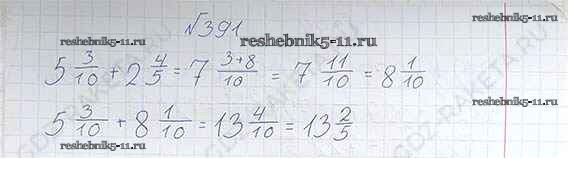 №391
reshebnik5-11.ru reshebnik5-11.ru
5 3/10 + 2 4/5 = 7 (3+8)/10 = 7 11/10 = 8 1/10
reshebnik5-11.ru
5 3/10 + 8 1/10 = 13 4/10 = 13 2/5
reshebnik5-11.ru
GDZ-RAKETA.RU